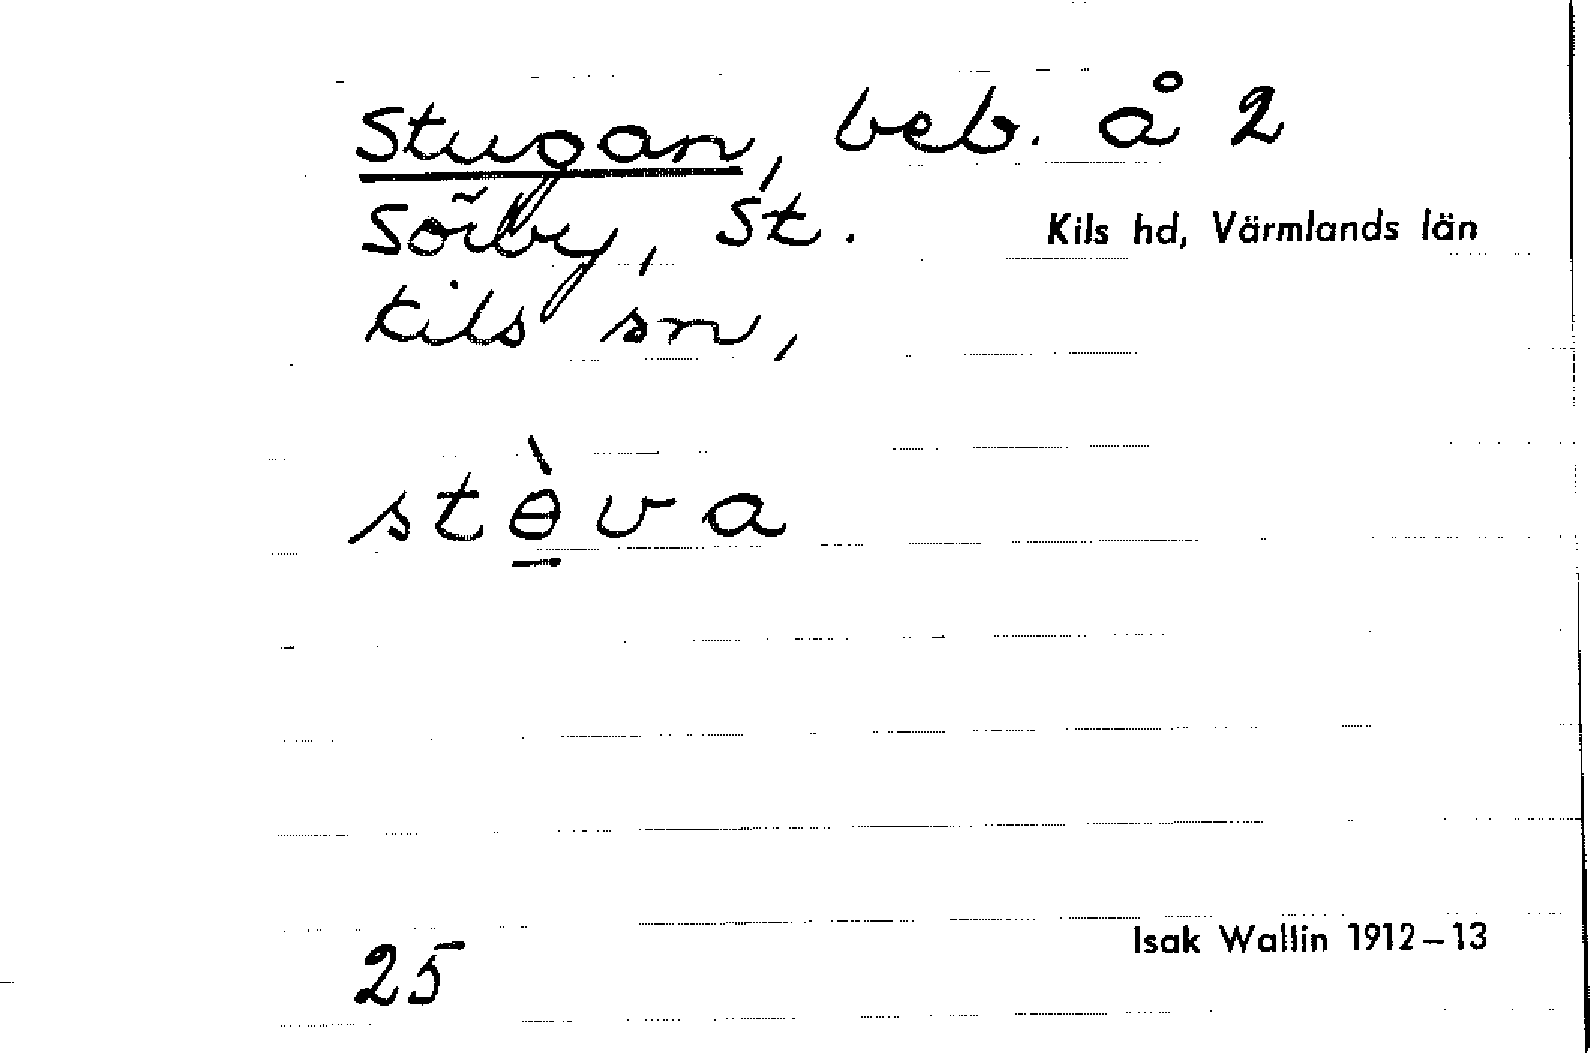 Stugan, beb. å 2
Sörby, St.
Kils hd, Värmlands län
Kils sn,
stɵ̀va
25
Isak Wallin 1912–13